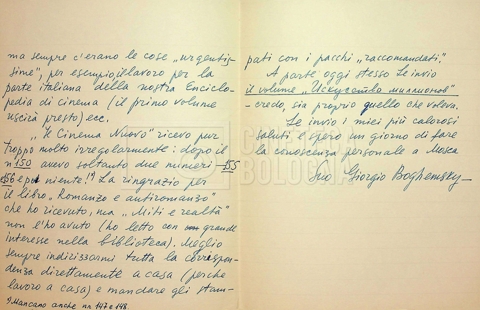 ma sempre c'erano le cose „urgentis-
sime", per esempio, il lavoro per la
parte italiana della nostra Enciclo-
pedia di cinema (il primo volume
uscirà presto) ecc.
„Il Cinema Nuovo" ricevo pur
troppo molto irregolarmente: dopo il
n° 150 avevo soltanto due numeri – 155
e 156 e poi niente!*) La ringrazio per
il libro „Romanzo e antiromanzo"
che ho ricevuto, ma „Miti e realtà"
non l'ho avuto (ho letto con grande
interesse nella biblioteca). Meglio
sempre indirizzarmi tutta la corrispon-
denza direttamente a casa (perche
lavoro a casa) e mandare gli stam-
*) Mancano anche nn 147 e 148.
pati con i pacchi „raccomandati".
A parte oggi stesso Le invio
il volume „Искусство миллионов"
– credo, sia proprio quello che voleva.
Le invio i miei più calorosi
saluti e spero un giorno di fare
la conoscenza personale a Mosca
Suo Giorgio Boghemsky –
BOLOGNA